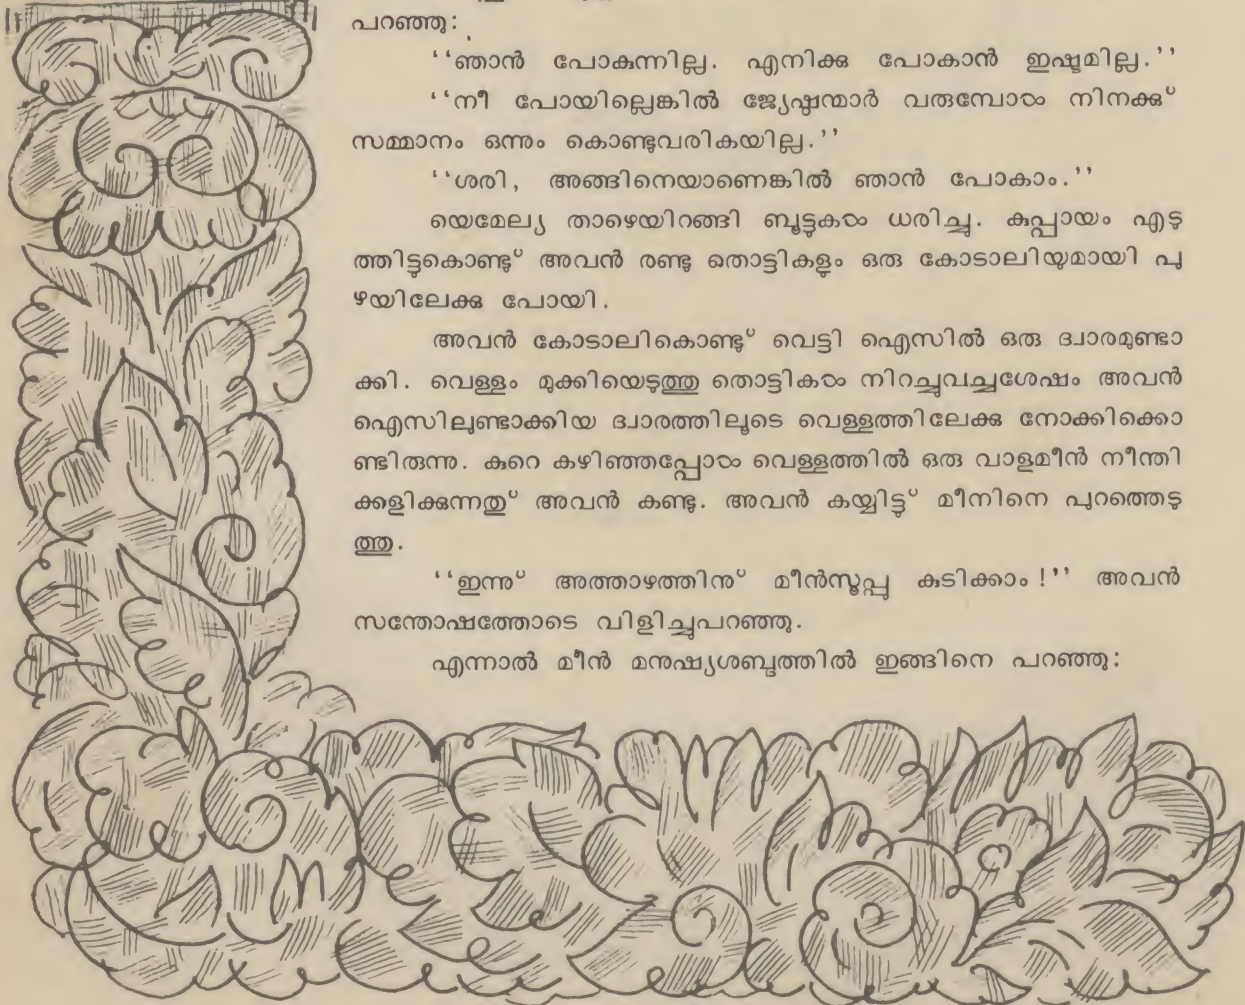 പറഞ്ഞു:
‘‘ഞാൻ പോകുന്നില്ല. എനിക്കു പോകാൻ ഇഷ്ടമില്ല.’’
‘‘നീ പോയില്ലെങ്കിൽ ജ്യേഷ്ഠന്മാർ വരുമ്പോൾ നിനക്കു്
സമ്മാനം ഒന്നും കൊണ്ടുവരികയില്ല.’’
‘‘ശരി, അങ്ങിനെയാണെങ്കിൽ ഞാൻ പോകാം.’’
യെമേല്യ താഴെയിറങ്ങി ബൂട്ടുകൾ ധരിച്ചു. കുപ്പായം എടു
ത്തിട്ടുകൊണ്ടു് അവൻ രണ്ടു തൊട്ടികളും ഒരു കോടാലിയുമായി പു
ഴയിലേക്കു പോയി.
അവൻ കോടാലികൊണ്ടു് വെട്ടി ഐസിൽ ഒരു ദ്വാരമുണ്ടാ
ക്കി. വെള്ളം മുക്കിയെടുത്തു തൊട്ടികൾ നിറച്ചുവച്ചശേഷം അവൻ
ഐസിലുണ്ടാക്കിയ ദ്വാരത്തിലൂടെ വെള്ളത്തിലേക്കു നോക്കിക്കൊ
ണ്ടിരുന്നു. കുറെ കഴിഞ്ഞപ്പോൾ വെള്ളത്തിൽ ഒരു വാളമീൻ നീന്തി
ക്കളിക്കുന്നതു് അവൻ കണ്ടു. അവൻ കയ്യിട്ടു് മീനിനെ പുറത്തെടു
ത്തു.
‘‘ഇന്നു് അത്താഴത്തിനു് മീൻസൂപ്പു കുടിക്കാം!’’ അവൻ
സന്തോഷത്തോടെ വിളിച്ചുപറഞ്ഞു.
എന്നാൽ മീൻ മനുഷ്യശബ്ദത്തിൽ ഇങ്ങിനെ പറഞ്ഞു: